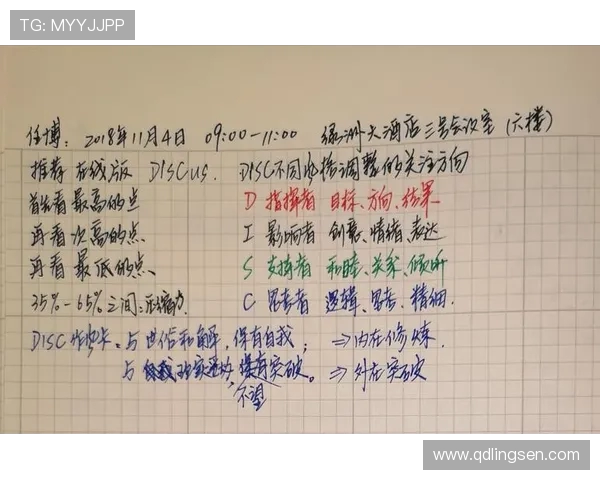 TG: MYYJJPP
任博: 2018年11月4日 09:00-11:00 绿洲大酒店三号会议室(六楼)
推荐 在线版 DISCUS. DISC不同风格调整的关注方向
首先看最高的点 D 指挥者 目标、方向、结果
再看次高的点、 I 影响者 创意、情绪、表达
再看最低的点、 S 支持者 和睦、关系、倾听
35%-65%之间:压缩 C 思考者 逻辑、思考、精细.
DISC 与世俗和解,保有自我; ⇒内在修炼.
与 突破。⇒外在突破
不望
www.qdlingsen.com